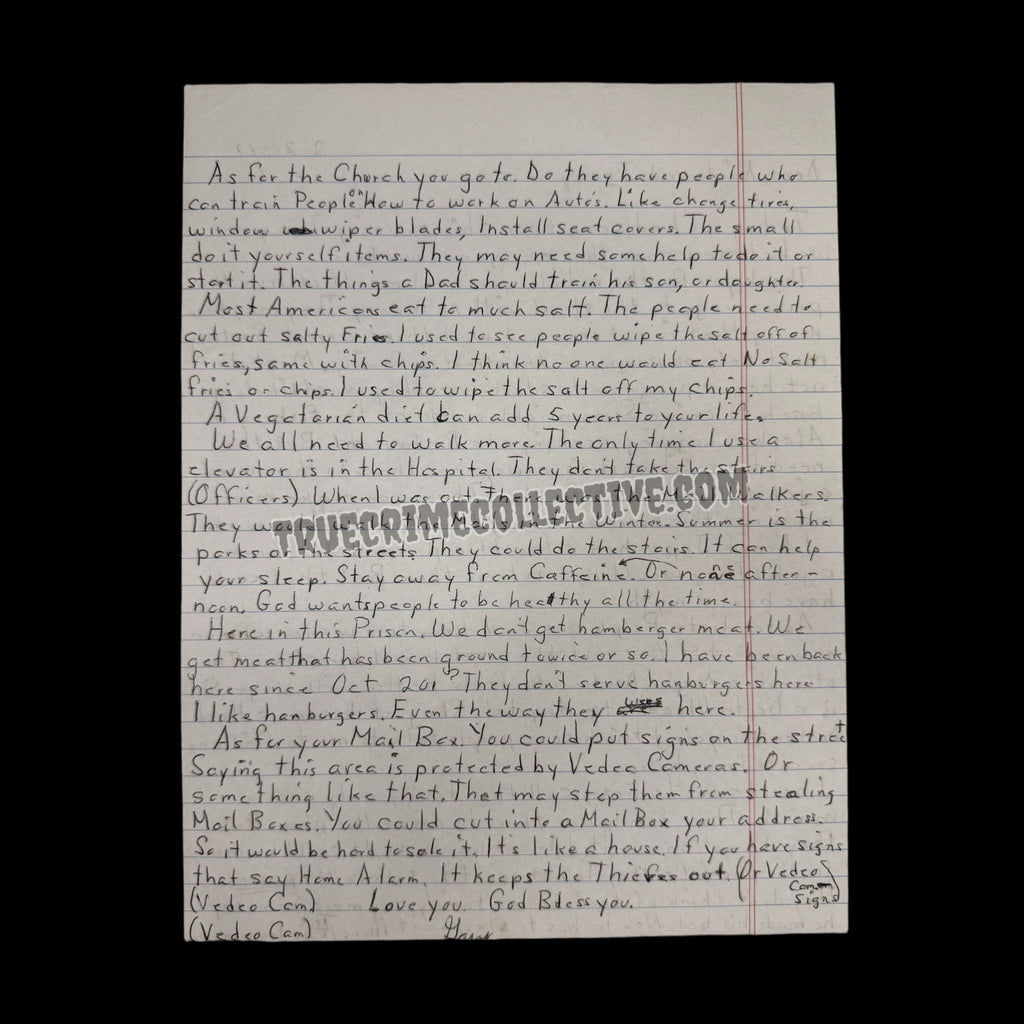 As for the Church you go to. Do they have people who
can train People on How to work on Auto's. Like change tires,
window wiper blades, Install seat covers. The small
do it yourself items. They may need some help to do it or
start it. The things a Dad should train his son, or doughter.
Most Americans eat to much salt. The people need to
cut out salty Fries. I used to see people wipe the salt off of
fries, same with chips. I think no one would eat No Salt
fries or chips. I used to wipe the salt off my chips.
A Vegatarian diet can add 5 years to your life.
We all need to walk more. The only time I use a
elevator is in the Hospital. They don't take the stairs
(Officers) When I was out There was the Mall Walkers.
They would walk the Malls in the Winter. Summer is the
TRUECRIMECOLLECTIVE.COM
parks or the streets. They could do the stairs. It can help
your sleep. Stay away from Caffeine. Or none after-
noon. God wants people to be healthy all the time.
Here in this Prison. We don't get hamberger meat. We
get meat that has been ground towice or so. I have been back
here since Oct 201? They don't serve hanburgers here
I like hanburgers. Even the way they were here.
As for your Mail Box. You could put signs on the street
Saying this area is protected by Vedeo Cameras. Or
something like that. That may stop them from stealing
Mail Boxes. You could cut into a Mail Box your address.
So it would be hard to sale it. It's like a house. If you have signs
that say Home Alarm. It keeps the Thiefes out. (Or Vedeo
Cam
Signs)
(Vedeo Cam) Love you. God Bless you.
(Vedeo Cam) Gary